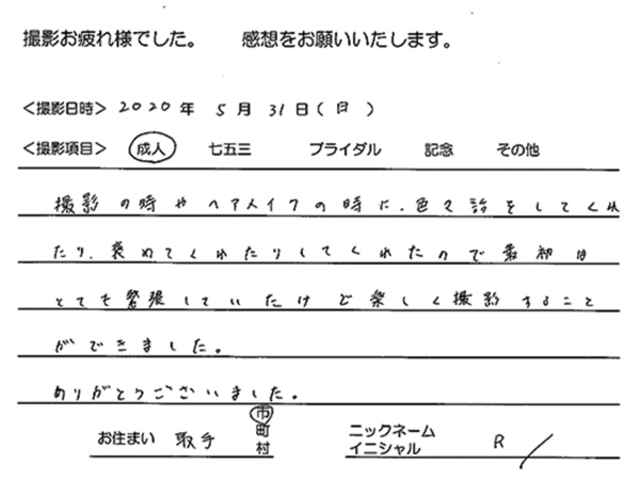 撮影お疲れ様でした。 感想をお願いいたします。
<撮影日時> 2020年 5月 31日(日)
<撮影項目> 成人 七五三 ブライダル 記念 その他
撮影の時やヘアメイクの時に、色々話をしてくれ
たり、褒めてくれたりしてくれたので最初は
とても緊張していたけど楽しく撮影すること
ができました。
ありがとうございました。
お住まい 取手 市町村 ニックネーム イニシャル R